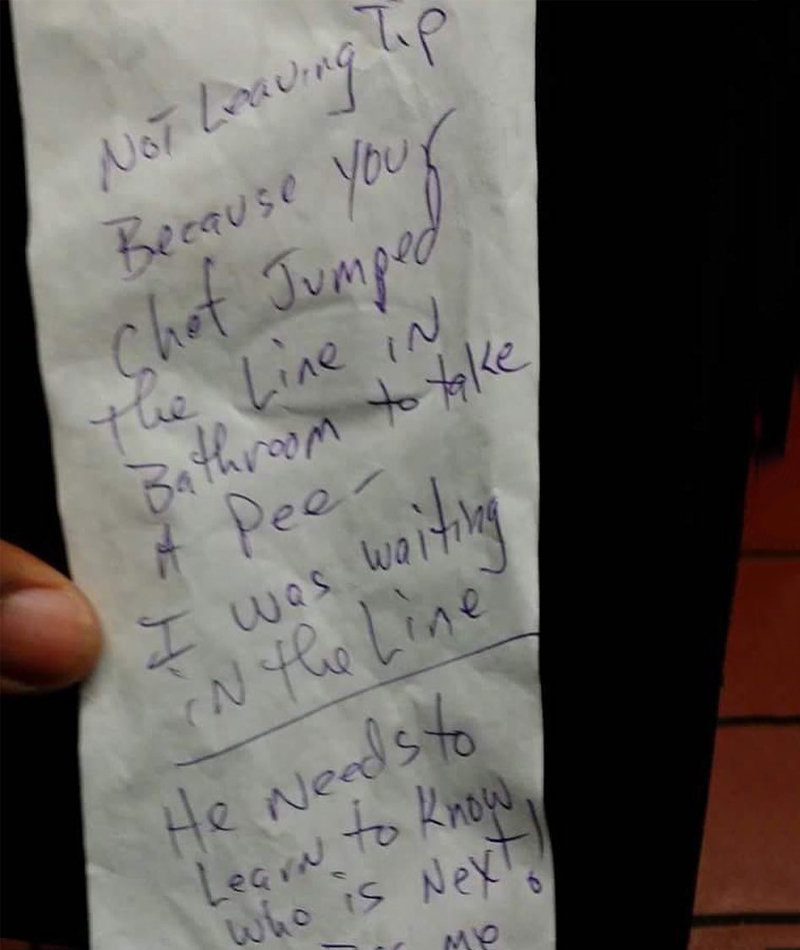 Not Leaving Tip
Because you
Chef Jumped
the Line in
Bathroom to take
A Pee -
I was waiting
in the Line
He Needs to
Learn to Know
who is Next!
me